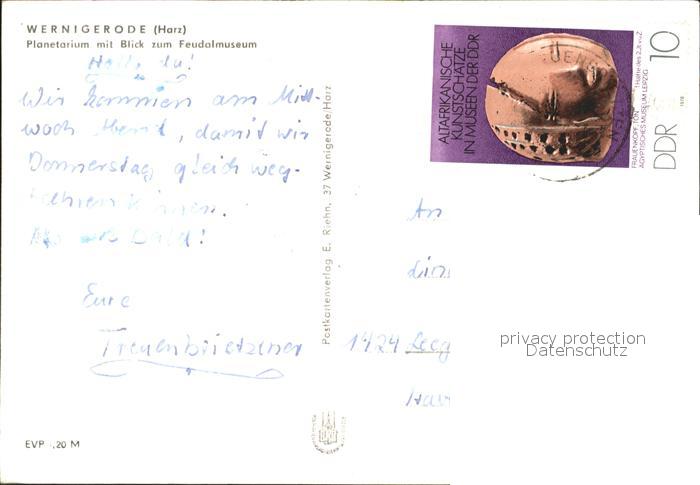 WERNIGERODE (Harz)
Planetarium mit Blick zum Feudalmuseum
Hallo, du!
Wir kommen am Mitt-
woch Abend, damit wir
Donnerstag gleich weg-
fahren können.
Bald!
Eure
Treuenbrietzener
EVP -,20 M
Postkartenverlag E. Riehn, 37 Wernigerode/Harz
ALTAFRIKANISCHE
KUNSTSCHÄTZE
IN MUSEEN DER DDR
FRAUENKOPF, TON
ÄGYPTISCHES MUSEUM LEIPZIG
1978
DDR 10
An
1424
privacy protection
Datenschutz